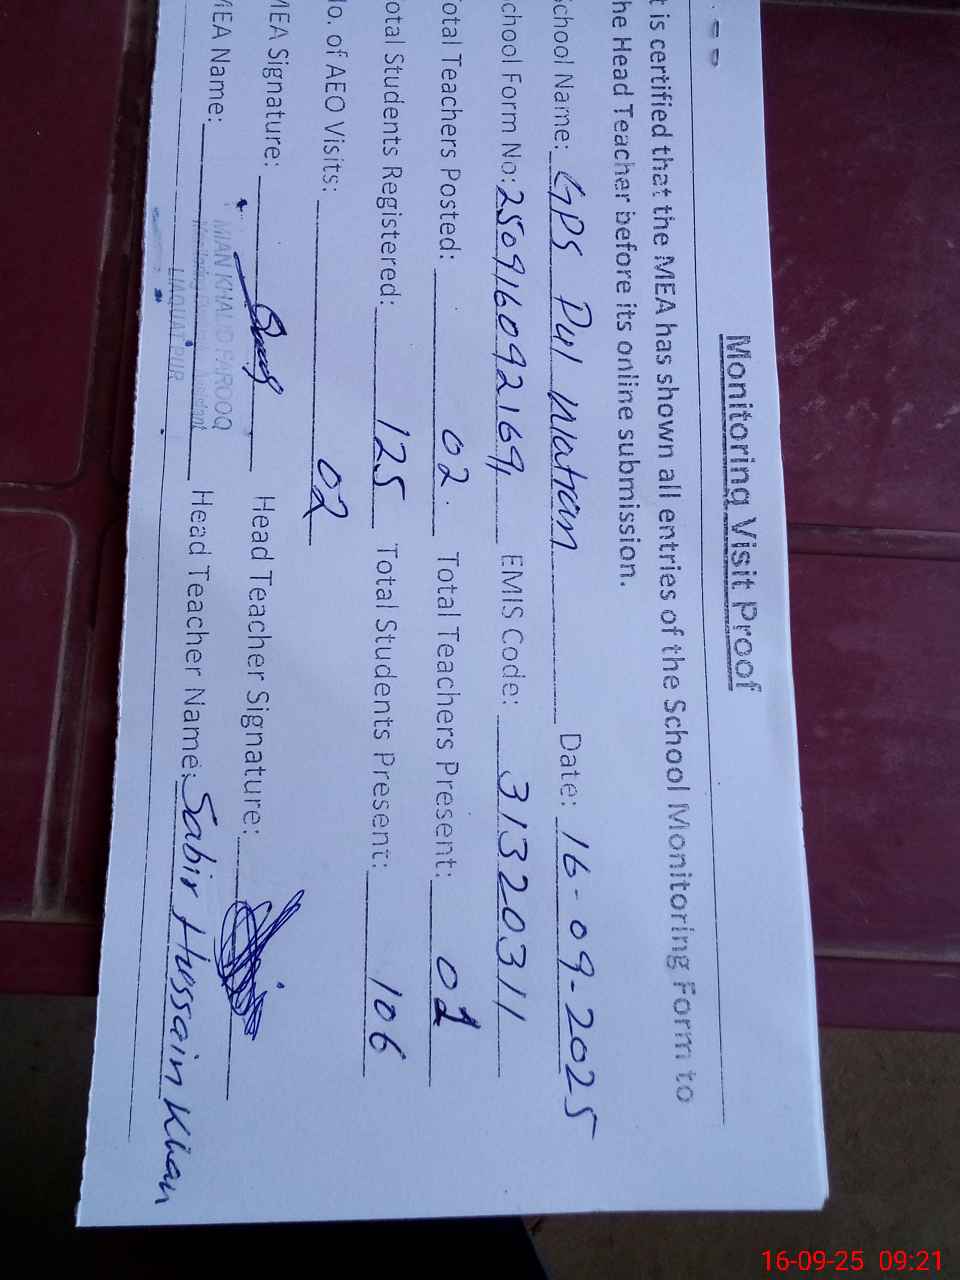 Monitoring Visit Proof
t is certified that the MEA has shown all entries of the School Monitoring Form to
he Head Teacher before its online submission.
chool Name: GPS Pul Niatran Date: 16-09-2025
chool Form No: 250916092169 EMIS Code: 31320311
otal Teachers Posted: 02 Total Teachers Present: 01
otal Students Registered: 125 Total Students Present: 106
o. of AEO Visits: 02
MEA Signature: Head Teacher Signature:
MIAN KHALID FAROOQ
Monitoring Assistant
LIAQUAT PUR
MEA Name: Head Teacher Name: Sabir Hussain Khan
16-09-25 09:21